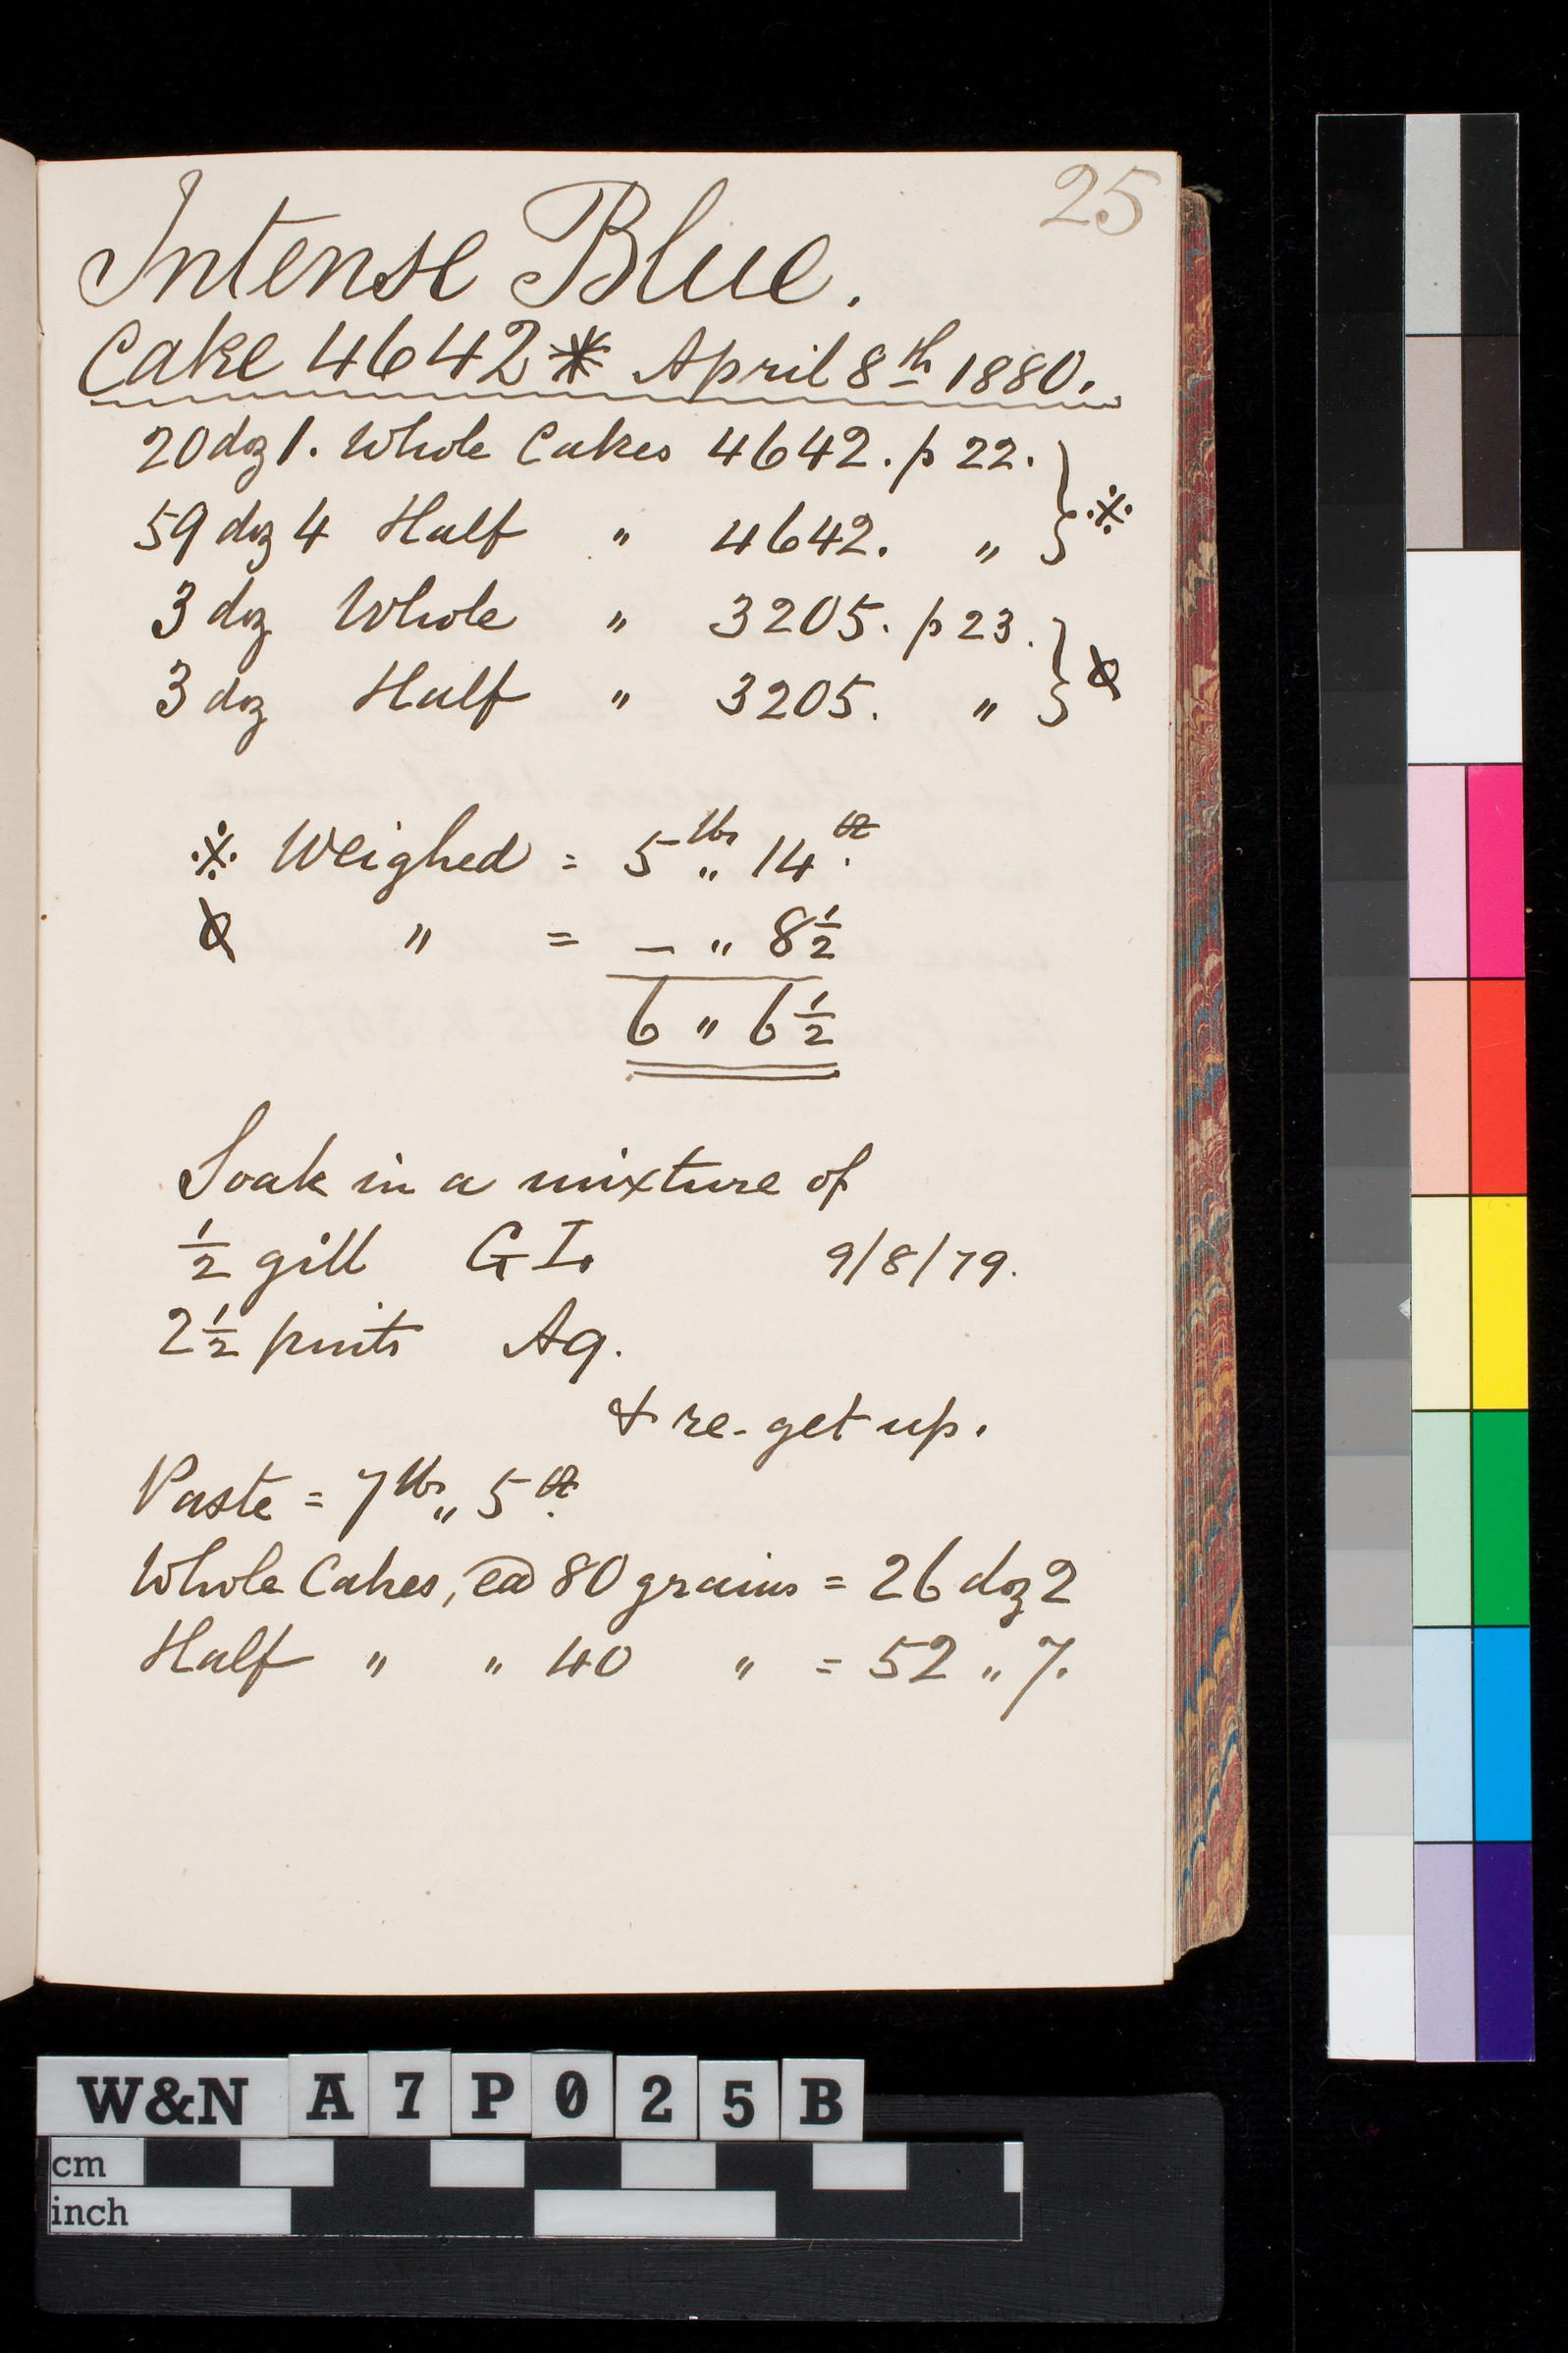 25
Intense Blue.
Cake 4642* April 8th 1880.
20 doz 1. Whole Cakes 4642. p 22. } ※
59 doz 4 Half " 4642. " }
3 doz Whole " 3205. p 23. }
3 doz Half " 3205. " }
※ Weighed = 5 lbs " 14 oz.
" = — " 8½
6 " 6½
Soak in a mixture of
½ gill GI. 9/8/79.
2½ pints Aq.
& re-get up.
Paste = 7 lbs " 5 oz.
Whole Cakes, ea 80 grains = 26 doz 2
Half " " 40 " = 52 " 7.
W&N A7P025B
cm
inch